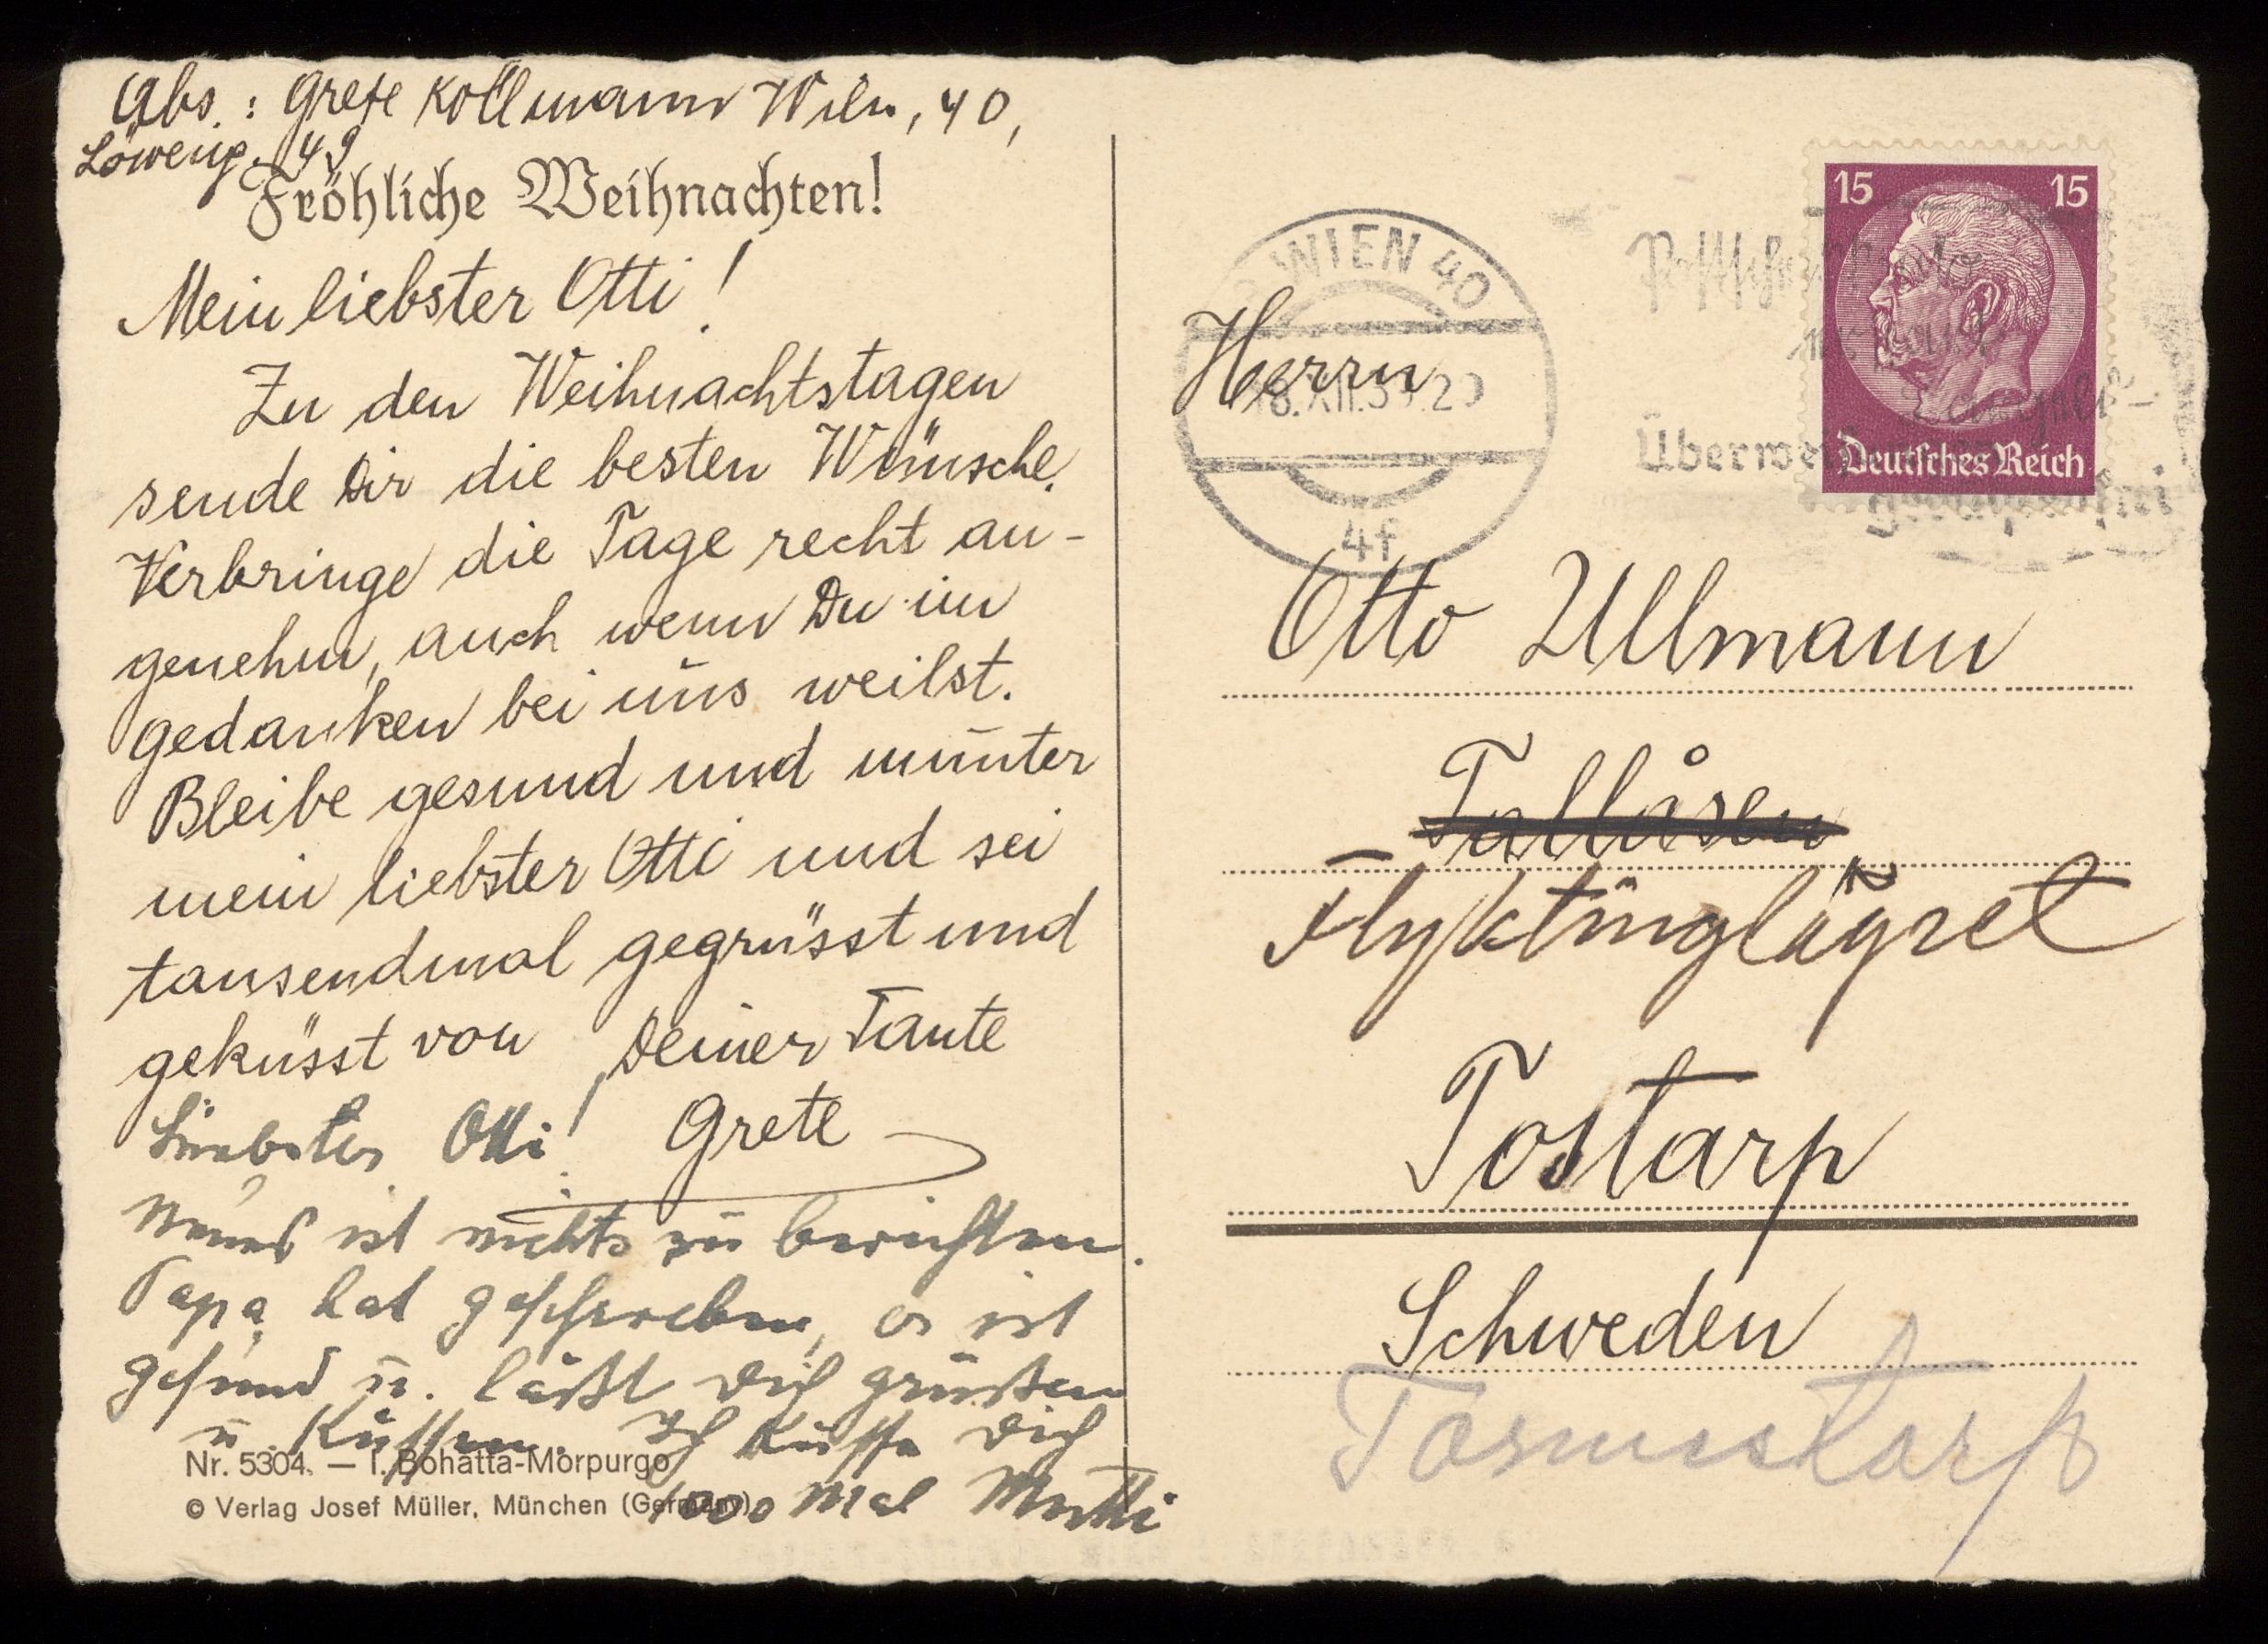 Abs.: Grete Kollmann Wien, 40,
Löweng. 49
Fröhliche Weihnachten!
Mein liebster Otti!
Zu den Weihnachtstagen
sende Dir die besten Wünsche.
Verbringe die Tage recht an-
genehm, auch wenn Du im
gedanken bei uns weilst.
Bleibe gesund und munter
mein liebster Otti und sei
tausendmal gegrüsst und
geküsst von Deiner Tante
Grete
Liebster Otti!
Neues ist nichts zu berichten.
Papa hat geschrieben, er ist
gesund u. läßt Dich grüßen
u. küssen. Ich küsse Dich
1000 mal Mutti
Nr. 5304. — I. Bohatta-Morpurgo
© Verlag Josef Müller, München (Germany)
WIEN 40
18.XII.39.20
4f
15 15
Deutsches Reich
Herrn
Otto Ullmann
Tallåsen
Flyktinglägret
Tostarp
Schweden